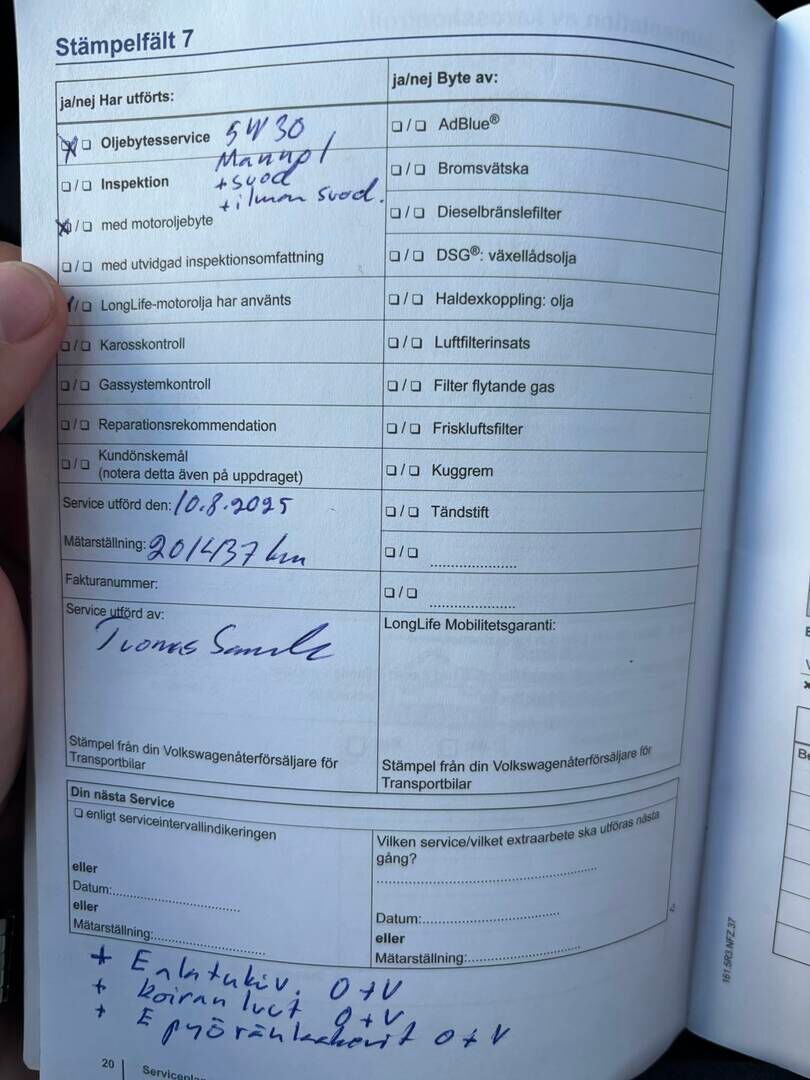 Stämpelfält 7
ja/nej Har utförts:
ja/nej Byte av:
Oljebytesservice 5W30
Mannol
/ Inspektion + svod
+ ilman svod.
/ med motoroljebyte
/ med utvidgad inspektionsomfattning
/ LongLife-motorolja har använts
/ Karosskontroll
/ Gassystemkontroll
/ Reparationsrekommendation
/ Kundönskemål
(notera detta även på uppdraget)
Service utförd den: 10.8.2025
Mätarställning: 201437 km
Fakturanummer:
Service utförd av:
Stämpel från din Volkswagenåterförsäljare för
Transportbilar
/ AdBlue®
/ Bromsvätska
/ Dieselbränslefilter
/ DSG®: växellådsolja
/ Haldexkoppling: olja
/ Luftfilterinsats
/ Filter flytande gas
/ Friskluftsfilter
/ Kuggrem
/ Tändstift
/
/
LongLife Mobilitetsgaranti:
Stämpel från din Volkswagenåterförsäljare för
Transportbilar
Din nästa Service
enligt serviceintervallindikeringen
eller
Datum:
eller
Mätarställning:
Vilken service/vilket extraarbete ska utföras nästa
gång?
Datum:
eller
Mätarställning:
+ O+V
+ koiran luct O+V
+ E O+V
20
161.5R3.NFZ.37